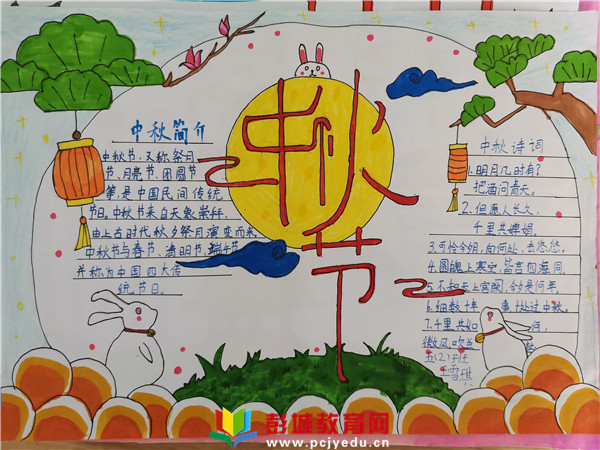 中秋节
中秋简介
中秋节,又称祭月
节、月亮节、团圆节
等,是中国民间传统
节日。中秋节来自天象崇拜,
由上古时代秋夕祭月演变而来
中秋节与春节、清明节、端午节
并称为中国四大传
统节日。
中秋诗词
1.明月几时有?
把酒问青天。
2.但愿人长久,
千里共婵娟。
3.可怜今夕月,向何处、去悠悠。
4.圆魄上寒空,皆言四海同。
5.不知天上宫阙,今夕是何年。
6.细数十年事,十处过中秋。
7.千里共如何,
微风吹兰
五(2)班
王雪琪
彭城教育网
www.pcjyedu.cn